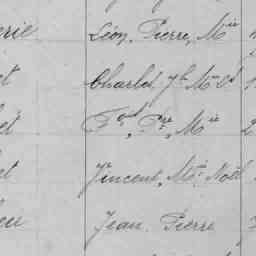 erie Léon, Pierre, Mie
et Charles, Jh Mie
et Fois, Pre, Mie 2
et Vincent, Mie Noël
leu Jean Pierre